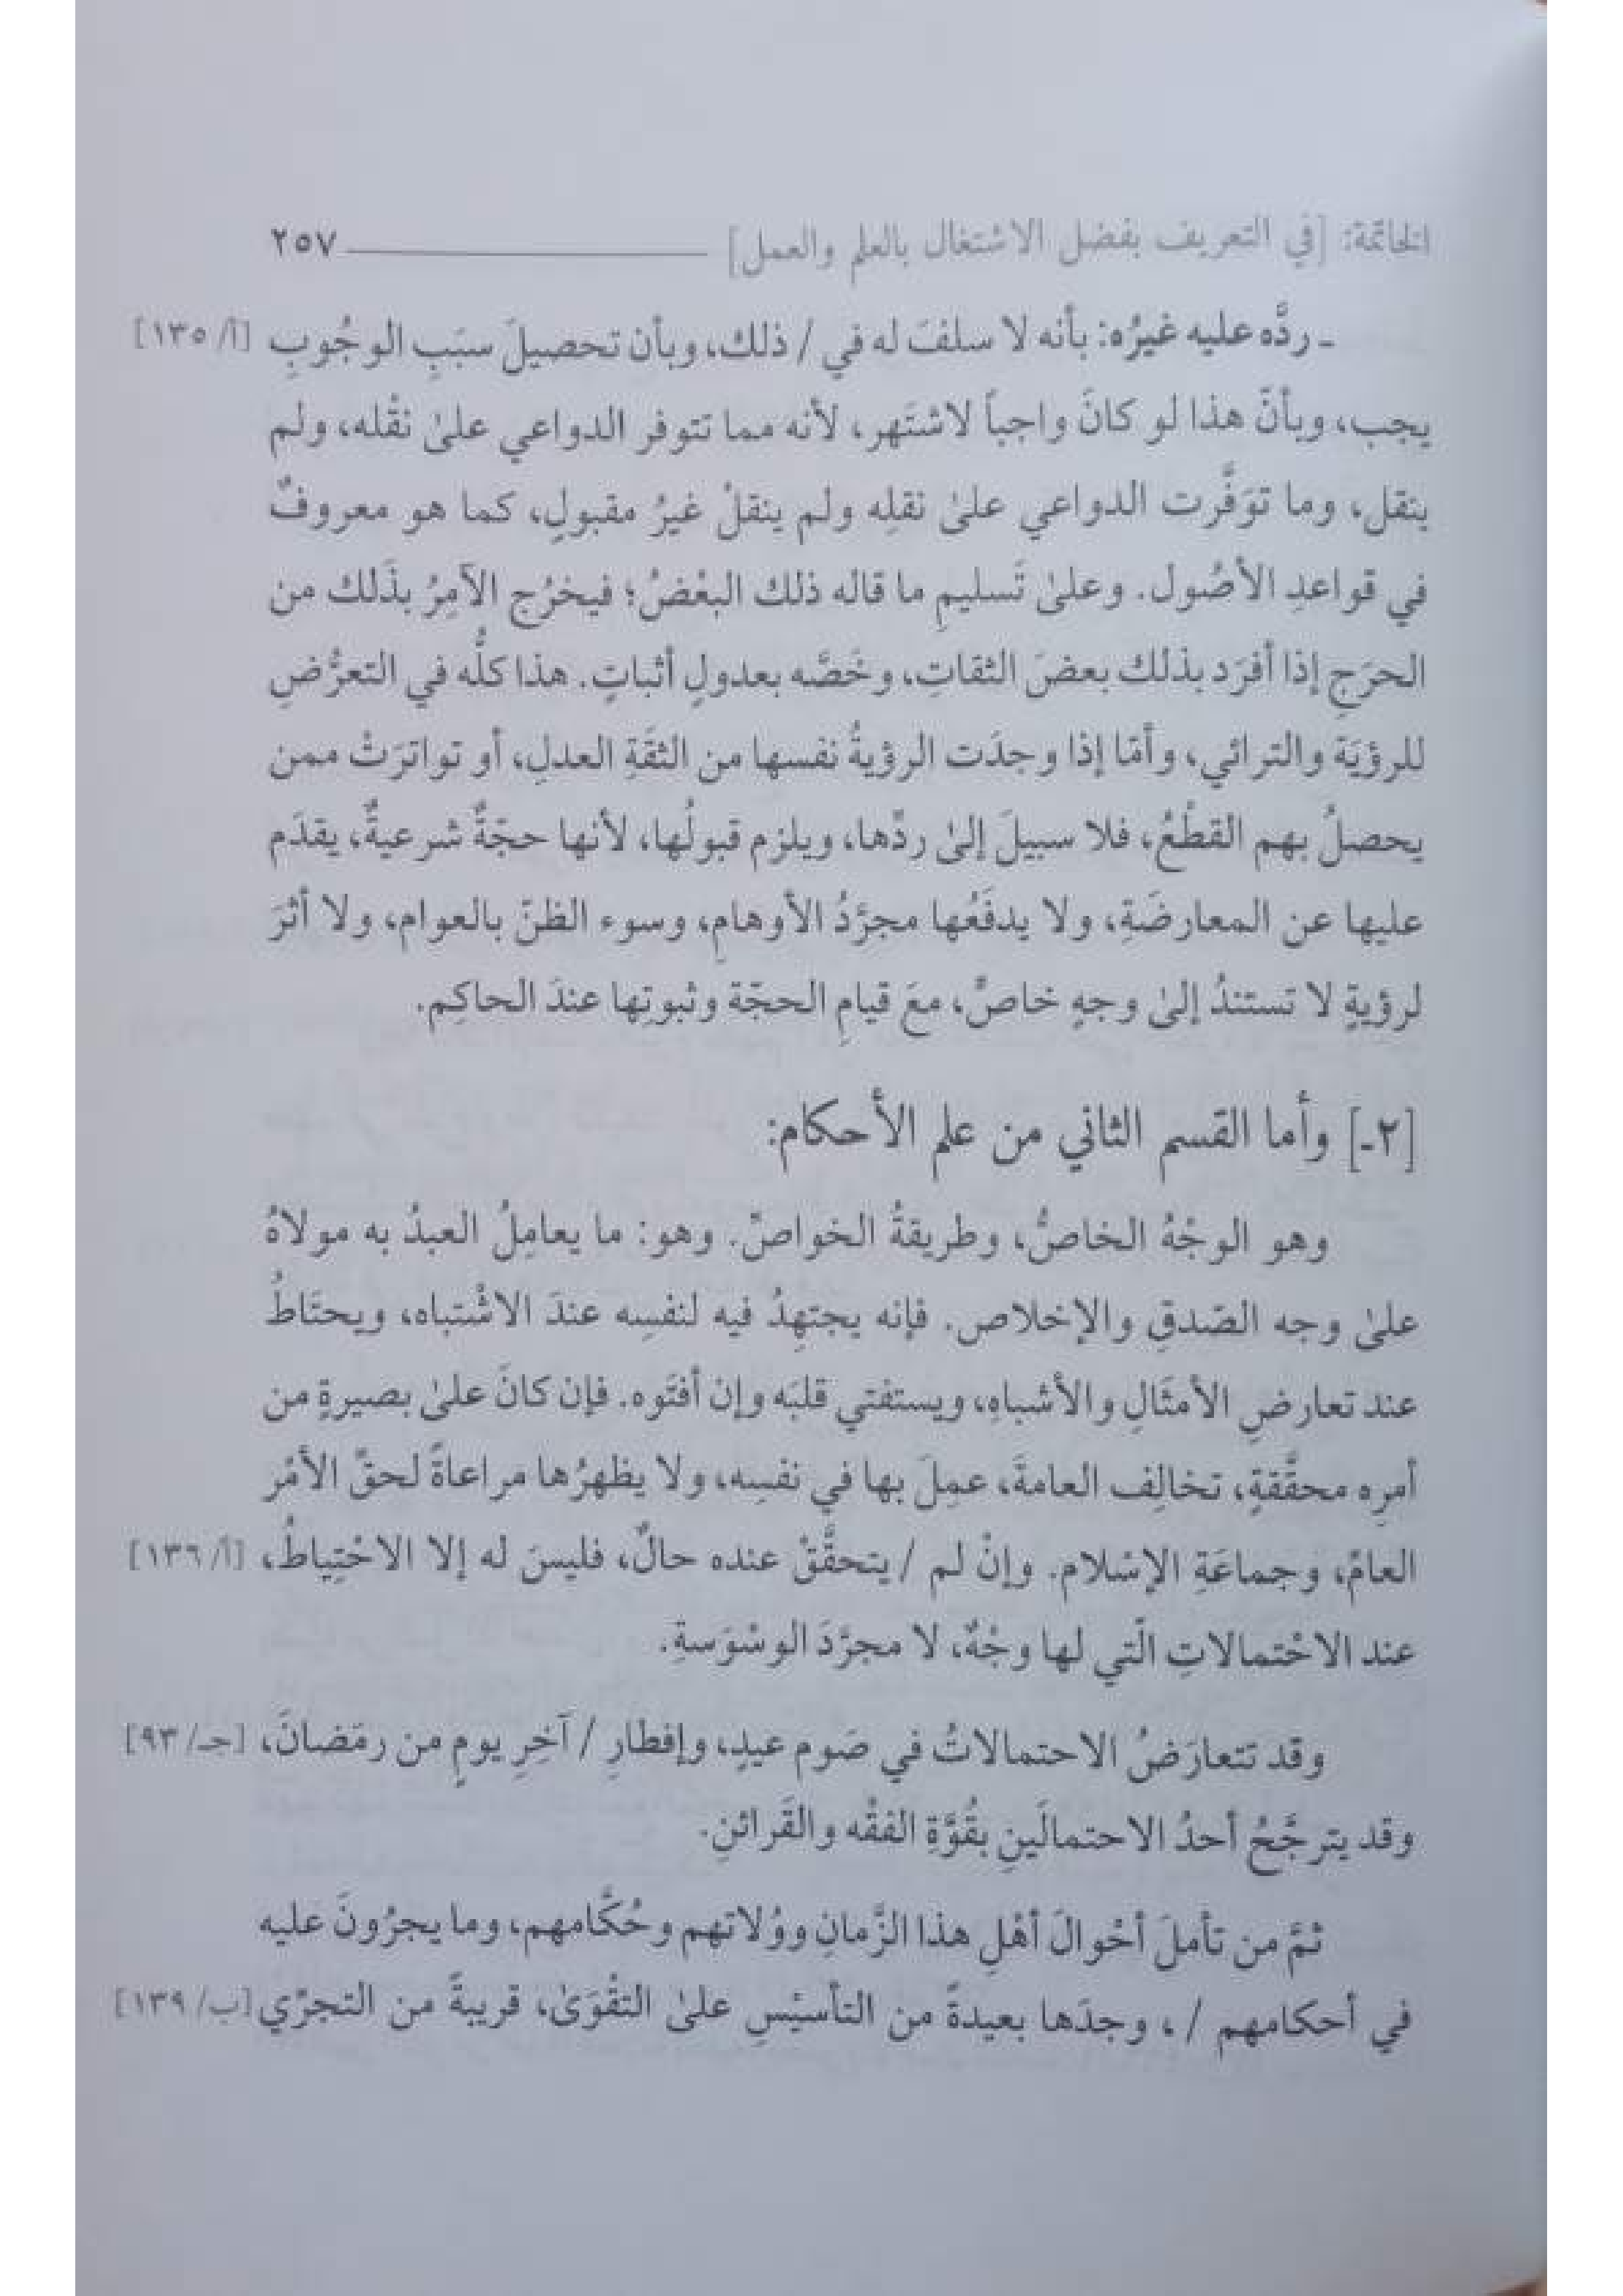 الخاتمة: [في التعريف بفضل الاشتغال بالعلم والعمل] ٢٥٧
ـ ردَّه عليه غيرُه: بأنه لا سلفَ له في / ذلك، وبأن تحصيلَ سبَبِ الوجُوبِ [أ/ ١٣٥]
يجب، وبأنّ هذا لو كانَ واجباً لاشتَهر، لأنه مما تتوفر الدواعي علىٰ نقْله، ولم
ينقل، وما توَفَّرت الدواعي علىٰ نقلِه ولم ينقلْ غيرُ مقبولٍ، كما هو معروفٌ
في قواعدِ الأصُول. وعلىٰ تَسليمِ ما قاله ذلك البعْضُ؛ فيخرُج الآمِرُ بذَلك من
الحرَجِ إذا أفرَد بذلك بعضَ الثقاتِ، وخَصَّه بعدولٍ أثباتٍ. هذا كلُّه في التعرُّضِ
للرؤيَة والترائي، وأمّا إذا وجدَت الرؤيةُ نفسها من الثقَةِ العدلِ، أو تواترَتْ ممن
يحصلُ بهم القطْعُ، فلا سبيلَ إلىٰ ردِّها، ويلزم قبولُها، لأنها حجّةٌ شرعيةٌ، يقدَم
عليها عن المعارضَةِ، ولا يدفَعُها مجرَّدُ الأوهامِ، وسوء الظنّ بالعوام، ولا أثرَ
لرؤيةٍ لا تستندُ إلىٰ وجهٍ خاصٍّ، معَ قيامِ الحجّة وثبوتِها عندَ الحاكِم.
[٢ـ] وأما القسم الثاني من علم الأحكام:
وهو الوجْهُ الخاصُّ، وطريقةُ الخواصِّ. وهو: ما يعامِلُ العبدُ به مولاهُ
علىٰ وجه الصّدقِ والإخلاص. فإنه يجتهِدُ فيه لنفسِه عندَ الاشْتباه، ويحتَاطُ
عند تعارضِ الأمثَالِ والأشباهِ، ويستفتي قلبَه وإن أفتَوه. فإن كانَ علىٰ بصيرةٍ من
أمرِه محقَّقةٍ، تخالِف العامةَ، عمِلَ بها في نفسِه، ولا يظهرُها مراعاةً لحقِّ الأمْر
العامّ، وجماعَةِ الإسْلام. وإنْ لم / يتحقَّقْ عنده حالٌ، فليسَ له إلا الاحْتِياطُ، [أ/ ١٣٦]
عند الاحْتمالاتِ الّتي لها وجْهٌ، لا مجرَّدَ الوسْوَسةِ.
وقد تتعارَضُ الاحتمالاتُ في صَوم عيدٍ، وإفطارِ / آخِرِ يومٍ من رمَضانَ، [جـ/ ٩٣]
وقد يترجَّحُ أحدُ الاحتمالَينِ بقُوَّةِ الفقْه والقَرائنِ.
ثمَّ من تأملَ أحْوالَ أهْلِ هذا الزَّمانِ ووُلاتهم وحُكَّامهم، وما يجرُونَ عليه
في أحكامهم / ، وجدَها بعيدةً من التأسيْسِ علىٰ التقْوَىٰ، قريبةً من التجرّي [ب/ ١٣٩]